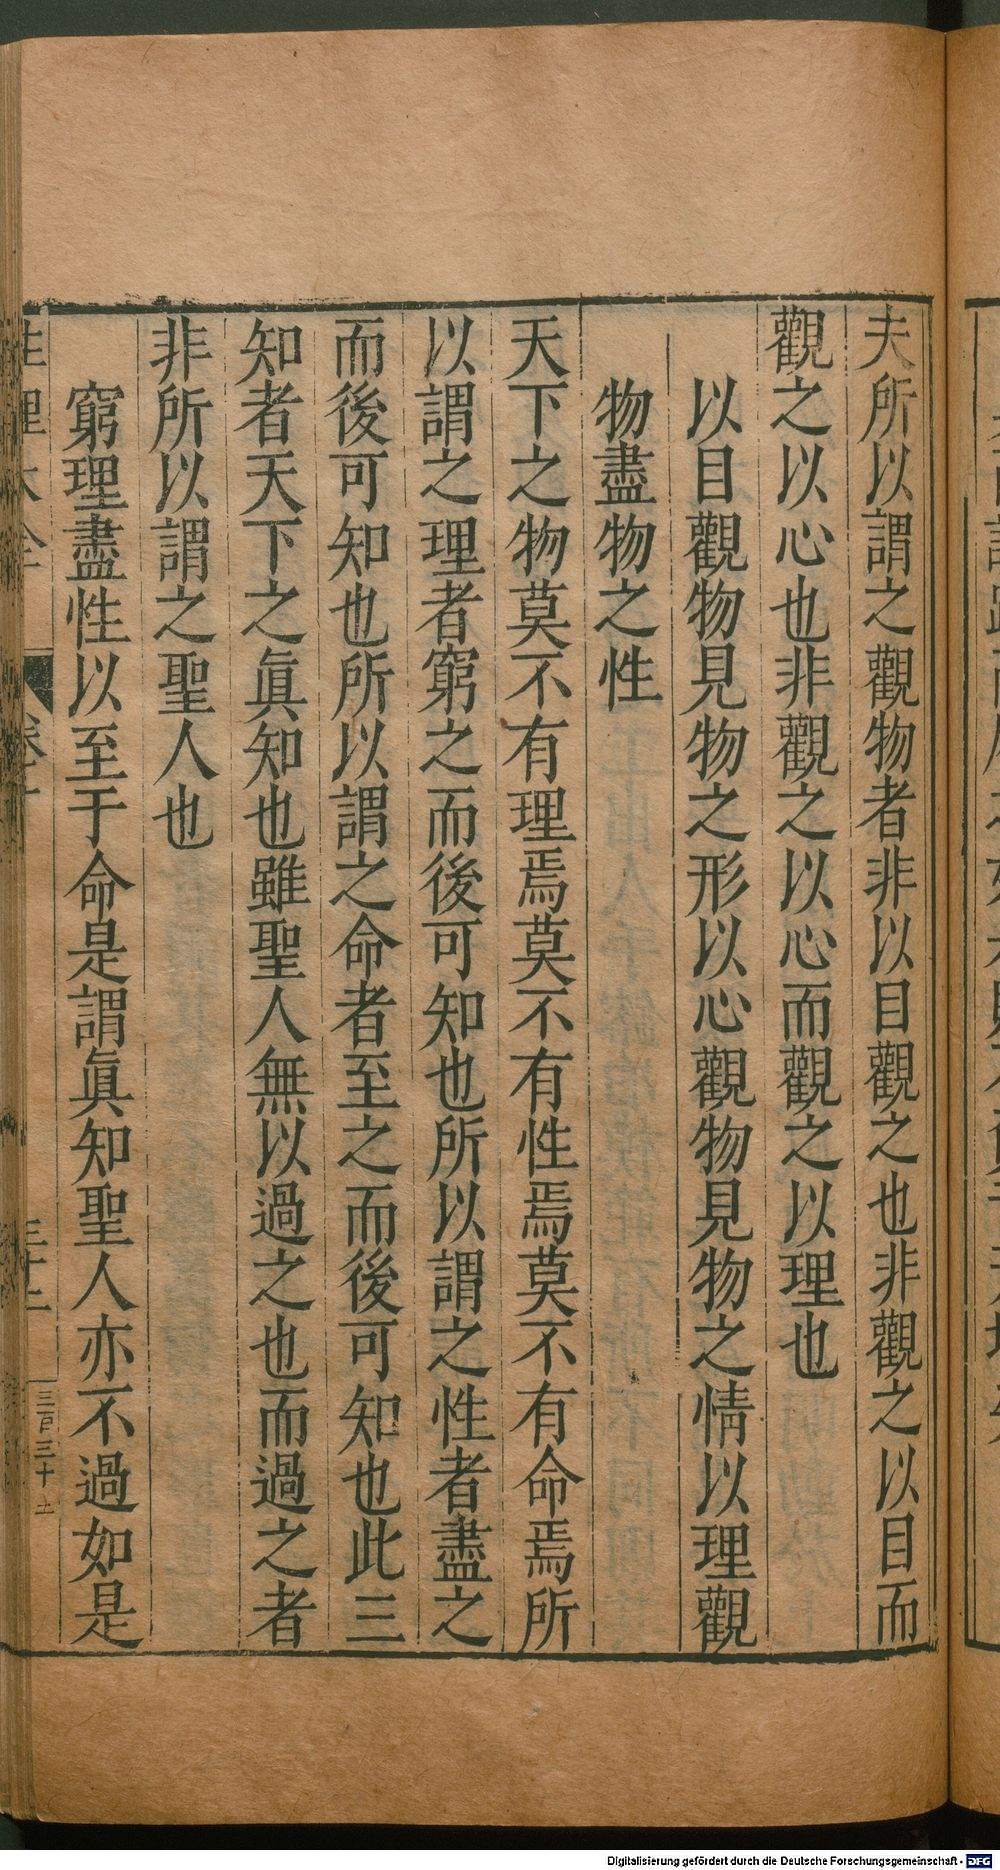 夫所以謂之觀物者非以目觀之也非觀之以目而
觀之以心也非觀之以心而觀之以理也
以目觀物見物之形以心觀物見物之情以理觀
物盡物之性
天下之物莫不有理焉莫不有性焉莫不有命焉所
以謂之理者窮之而後可知也所以謂之性者盡之
而後可知也所以謂之命者至之而後可知也此三
知者天下之眞知也雖聖人無以過之也而過之者
非所以謂之聖人也
窮理盡性以至于命是謂眞知聖人亦不過如是
性理大全
三百三十五
Digitalisierung gefördert durch die Deutsche Forschungsgemeinschaft - DFG